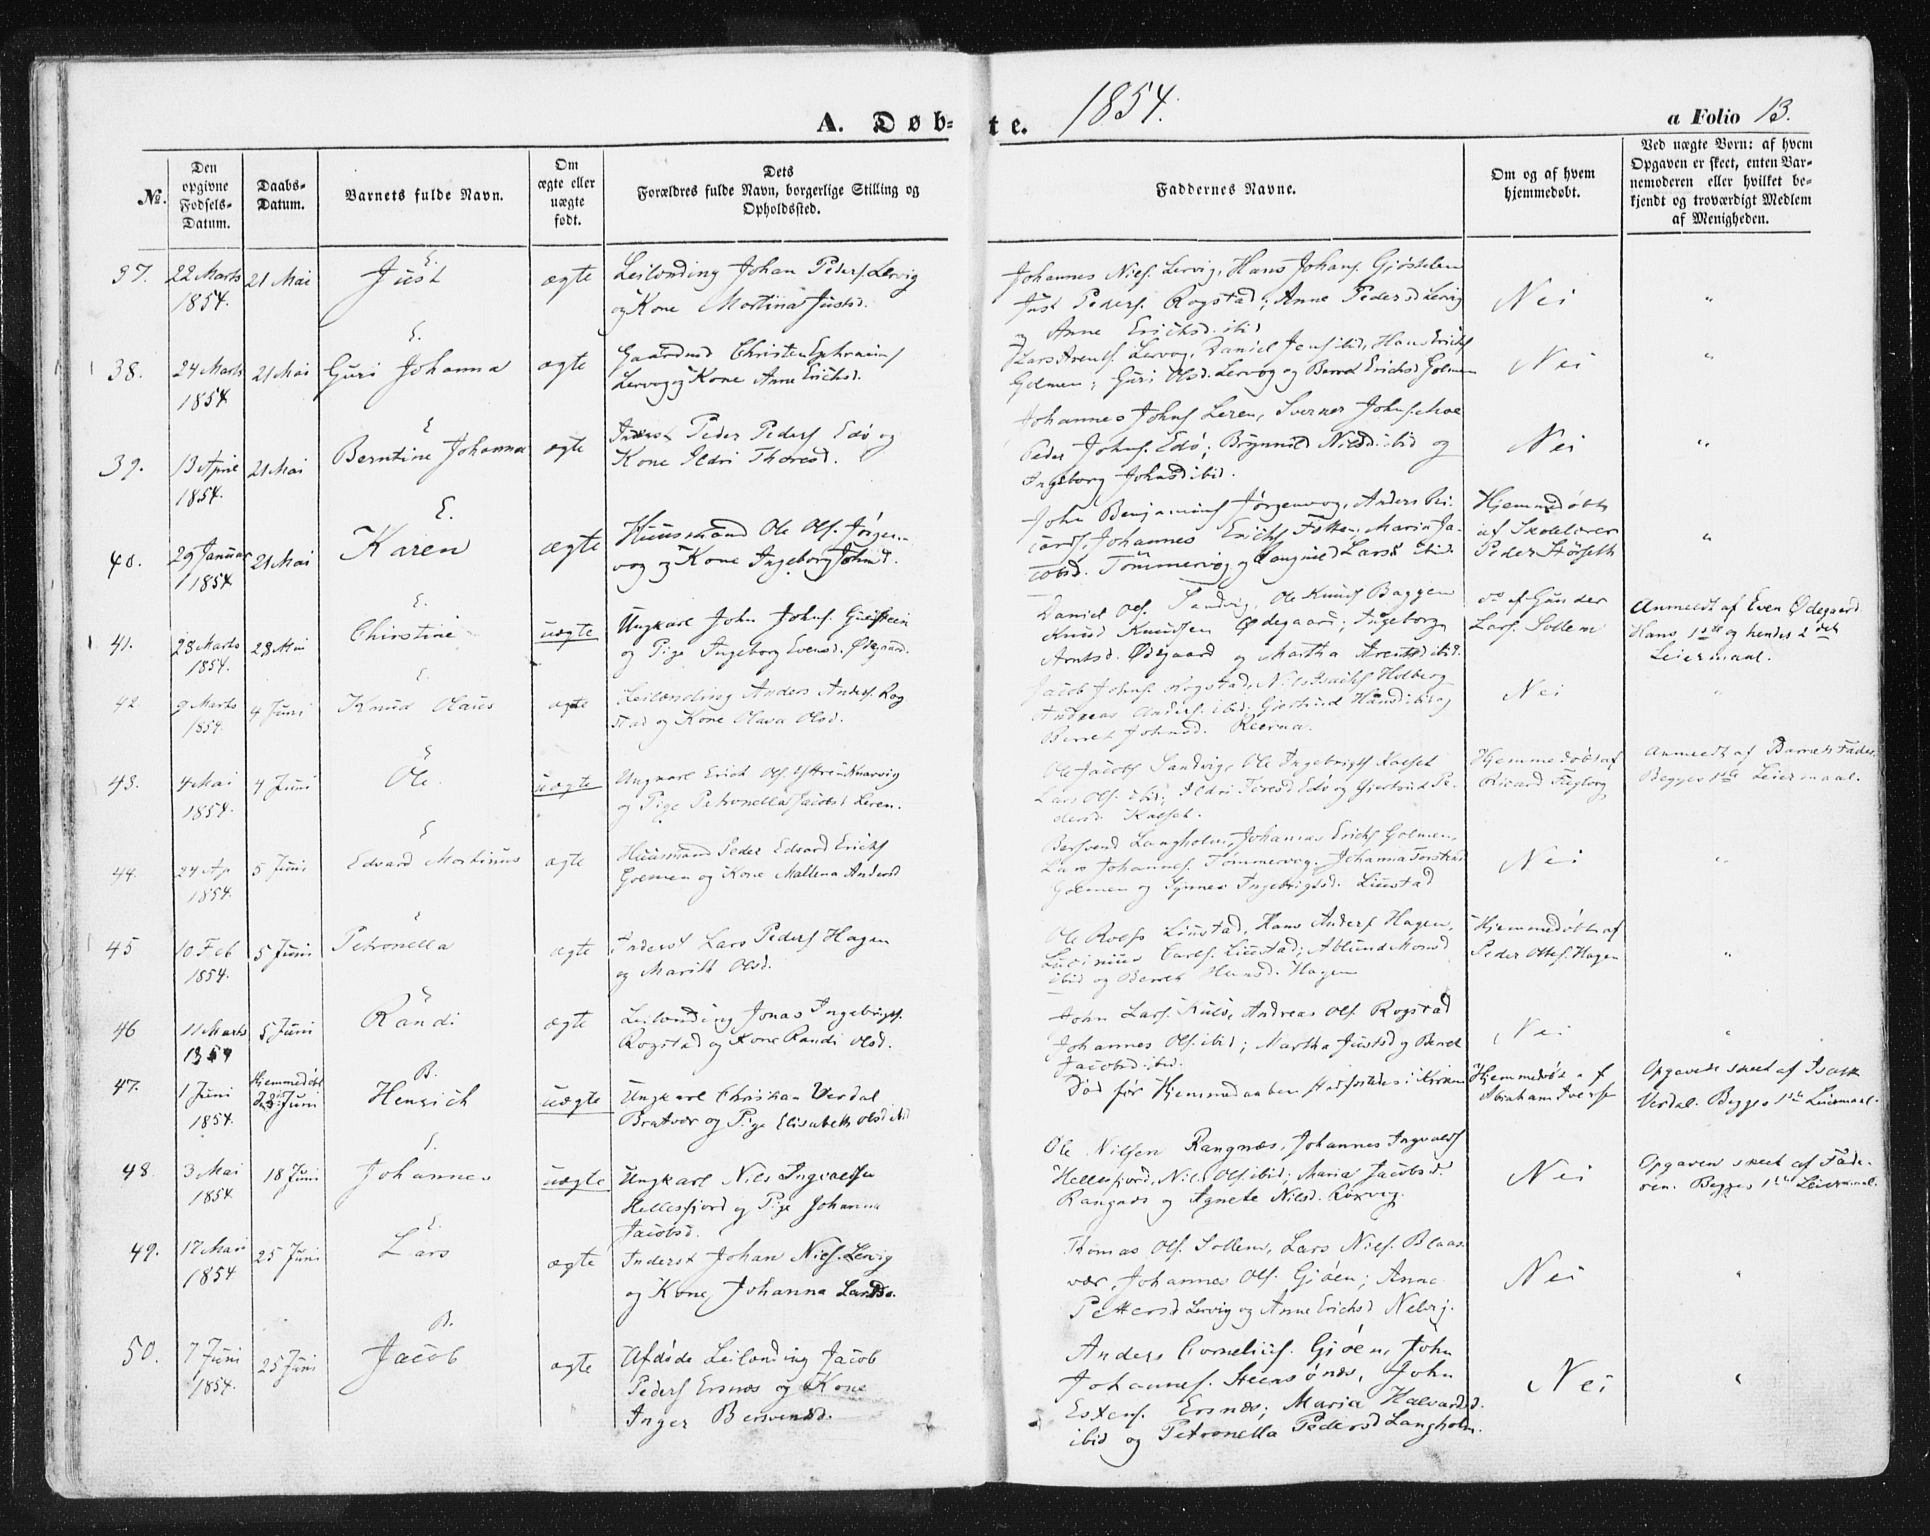 A. Døb-te. 1854.
a Folio 13.
No.
Den opgivne Fødsels-Datum.
Daabs-Datum.
Barnets fulde Navn.
Om ægte eller uægte født.
Dets Forældres fulde Navn, borgerlige Stilling og Opholdssted.
Faddernes Navne.
Om og af hvem hjemmedøbt.
Ved uægte Børn: af hvem Opgaven er skeet, enten Barnemoderen eller hvilket bekjendt og troværdigt Medlem af Menigheden.
37. 22 Marts 1854. 21 Mai
Just
ægte
Leilænding Johan Peders. Lervig
og Kone Martina Justsd.
Johannes Niels. Lervig, Hans Johans. Gjøstelen
Just Peders. Rogstad; Anne Pedersd Lervig
og Anne Erichsd. ibid
Nei
"
38. 24 Marts 1854 21 Mai
Guri Johanna
ægte
Gaardmd Christen Ephraims
Lervog og Kone Anne Erichsd.
Lars Arents. Lervog, Daniel Jens. ibid, Hans Erichs
Golmen; Guri Olsd. Lervog og Beret Erichsd Golmen
Nei
"
39. 13 April 1854. 21 Mai
Berntine Johanna
ægte
Inderst Peder Peders Edø og
Kone Ildri Thoresd.
Johannes Johns Leren, Sverner Johns. Moe
Peder Johns. Edø; Brynnild Nilsd ibid og
Ingeborg Johnsd ibid.
Nei
"
40. 29 Januar 1854 21 Mai
Karen
ægte
Huusmand Ole Ols. Jørgen-
vog og Kone Ingeborg Johnsd.
John Benjamins Jørgenvog, Anders Ri-
cards, Johannes Erichs Folken, Maria Ja-
cobsd. Tømmervog og Larsd ibid.
Hjemmedøbt
af Skolelærer
Peder Hørseth
"
41. 28 Marts 1854. 28 Mai
Christine
uægte
Ungkarl John Johns.
og Pige Ingeborg Evensd. Ødegaard.
Daniel Ols. Sandvig, Ole Knuds Baggen
Knud Knudsen Ødegaard; Ingeborg
Arntsd. Ødegaard og Martha Arentsd ibid.
do af Gunder
Lars. Sollem
Anmeldt af Even Ødegaard
Hans 1ste og hendes 2det
Leiermaal.
42 9 Marts 1854. 4 Juni
Knud Olaus
ægte
Leilænding Anders Anders. Rog
stad og Kone Olava Olsd.
Jacob Johns. Rogstad, Nils Holberg
Andreas Anders. ibid; Giertrud Hansd ibid og
Berret Johnsd.
Nei
"
43. 4 Mai 1854. 4 Juni
Ole
uægte
Ungkarl Erich Ols.
og Pige Petronella Jacobsd Leren.
Ole Jacobs Sandvig, Ole Ingebrigts
Lars Ols. ibid; Ildri Toresd Edø og Giertrud Pe-
dersd.
Hjemmedøbt af
Ricard Fugleog
Anmeldt af Barnets Fader.
Begges 1ste Leiermaal.
44. 24 Ap 1854. 5 Juni
Edvard Martinus
ægte
Huusmand Peder Edvard Erichs
Golmen og Kone Mallena Andersd
Bersvend Langholm, Johannes Erichs Golmen,
Lars Johannes. Tømmervog; Johanna Torstensd
Golmen og Synnev Ingebrigtsd. Liustad
Nei
"
45 10 Feb 1854. 5 Juni
Petronella
ægte
Inderst Lars Peders Hagen
og Maritt Olsd.
Ole Rolfs Liustad, Hans Anders Hagen,
Carls. Liustad; Monsd
ibid og Berret Hansd. Hagen
Hjemmedøbt af
Peder Ottes. Hagen
"
46 11 Marts 1854 5 Juni
Randi
ægte
Leilænding Jonas Ingebrigts.
Rogstad og Kone Randi Olsd.
John Lars. Kulø, Andreas Ols Rogstad
Johannes Ols. ibid; Martha Justsd og Berret
Jacobsd ibid.
Nei
"
47. 1 Juni 1854. Hjemmedøbt Juni
Henrich
uægte
Ungkarl Christian Verdal
Bratvær og Pige Elisabeth Olsd ibid
Død før Hjemmedaaben stadfæstedes i Kirken
Hjemmedøbt af
Abraham Ivers
Opgaven skeet af Isach
Verdal. Begges 1ste Leiermaal.
48. 3 Mai 1854 18 Juni
Johannes
uægte
Ungkarl Nils Ingvalds
Hellesfjord og Pige Johanna
Jacobsd.
Ole Nilsen Rangnæs, Johannes Ingvalds
Hellesfjord, Niels Ols. ibid; Maria Jacobsd
Rangnæs og Agnete Nilsd. Roxvog.
Nei
Opgaven skeet af Fade-
ren. Begges 1ste Leiermaal.
49. 17 Mai 1854 25 Juni
Lars
ægte
Inderst Johan Niels. Lervig
og Kone Johanna Larsd.
Thomas Ols. Sollem, Lars Niels. Blaas-
vær, Johannes Ols. Gjøen; Anne
Pettersd Lervig og Anne Erichsd Nelvig.
Nei
"
50. 7 Juni 1854. 25 Juni
Jacob
ægte
Afdøde Leilænding Jacob
Peders Ersnæs og Kone
Inger Bersvendsd.
Anders Cornelius. Gjøen, John
Johannes. Steensønæs, John
Estens. Ersnæs; Maria Halvardsd.
ibid og Petronella Pedersd Langholm.
Nei
"